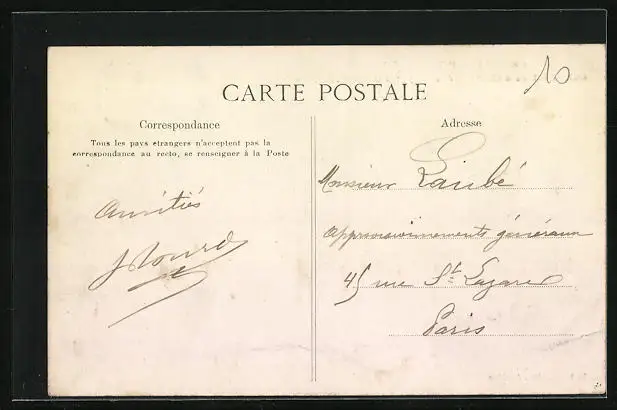 10
CARTE POSTALE
Correspondance
Tous les pays étrangers n'acceptent pas la
correspondance au recto, se renseigner à la Poste
Amitiés
Adresse
Monsieur Laubé
Approvisionnements généraux
45 rue St Lazare
Paris